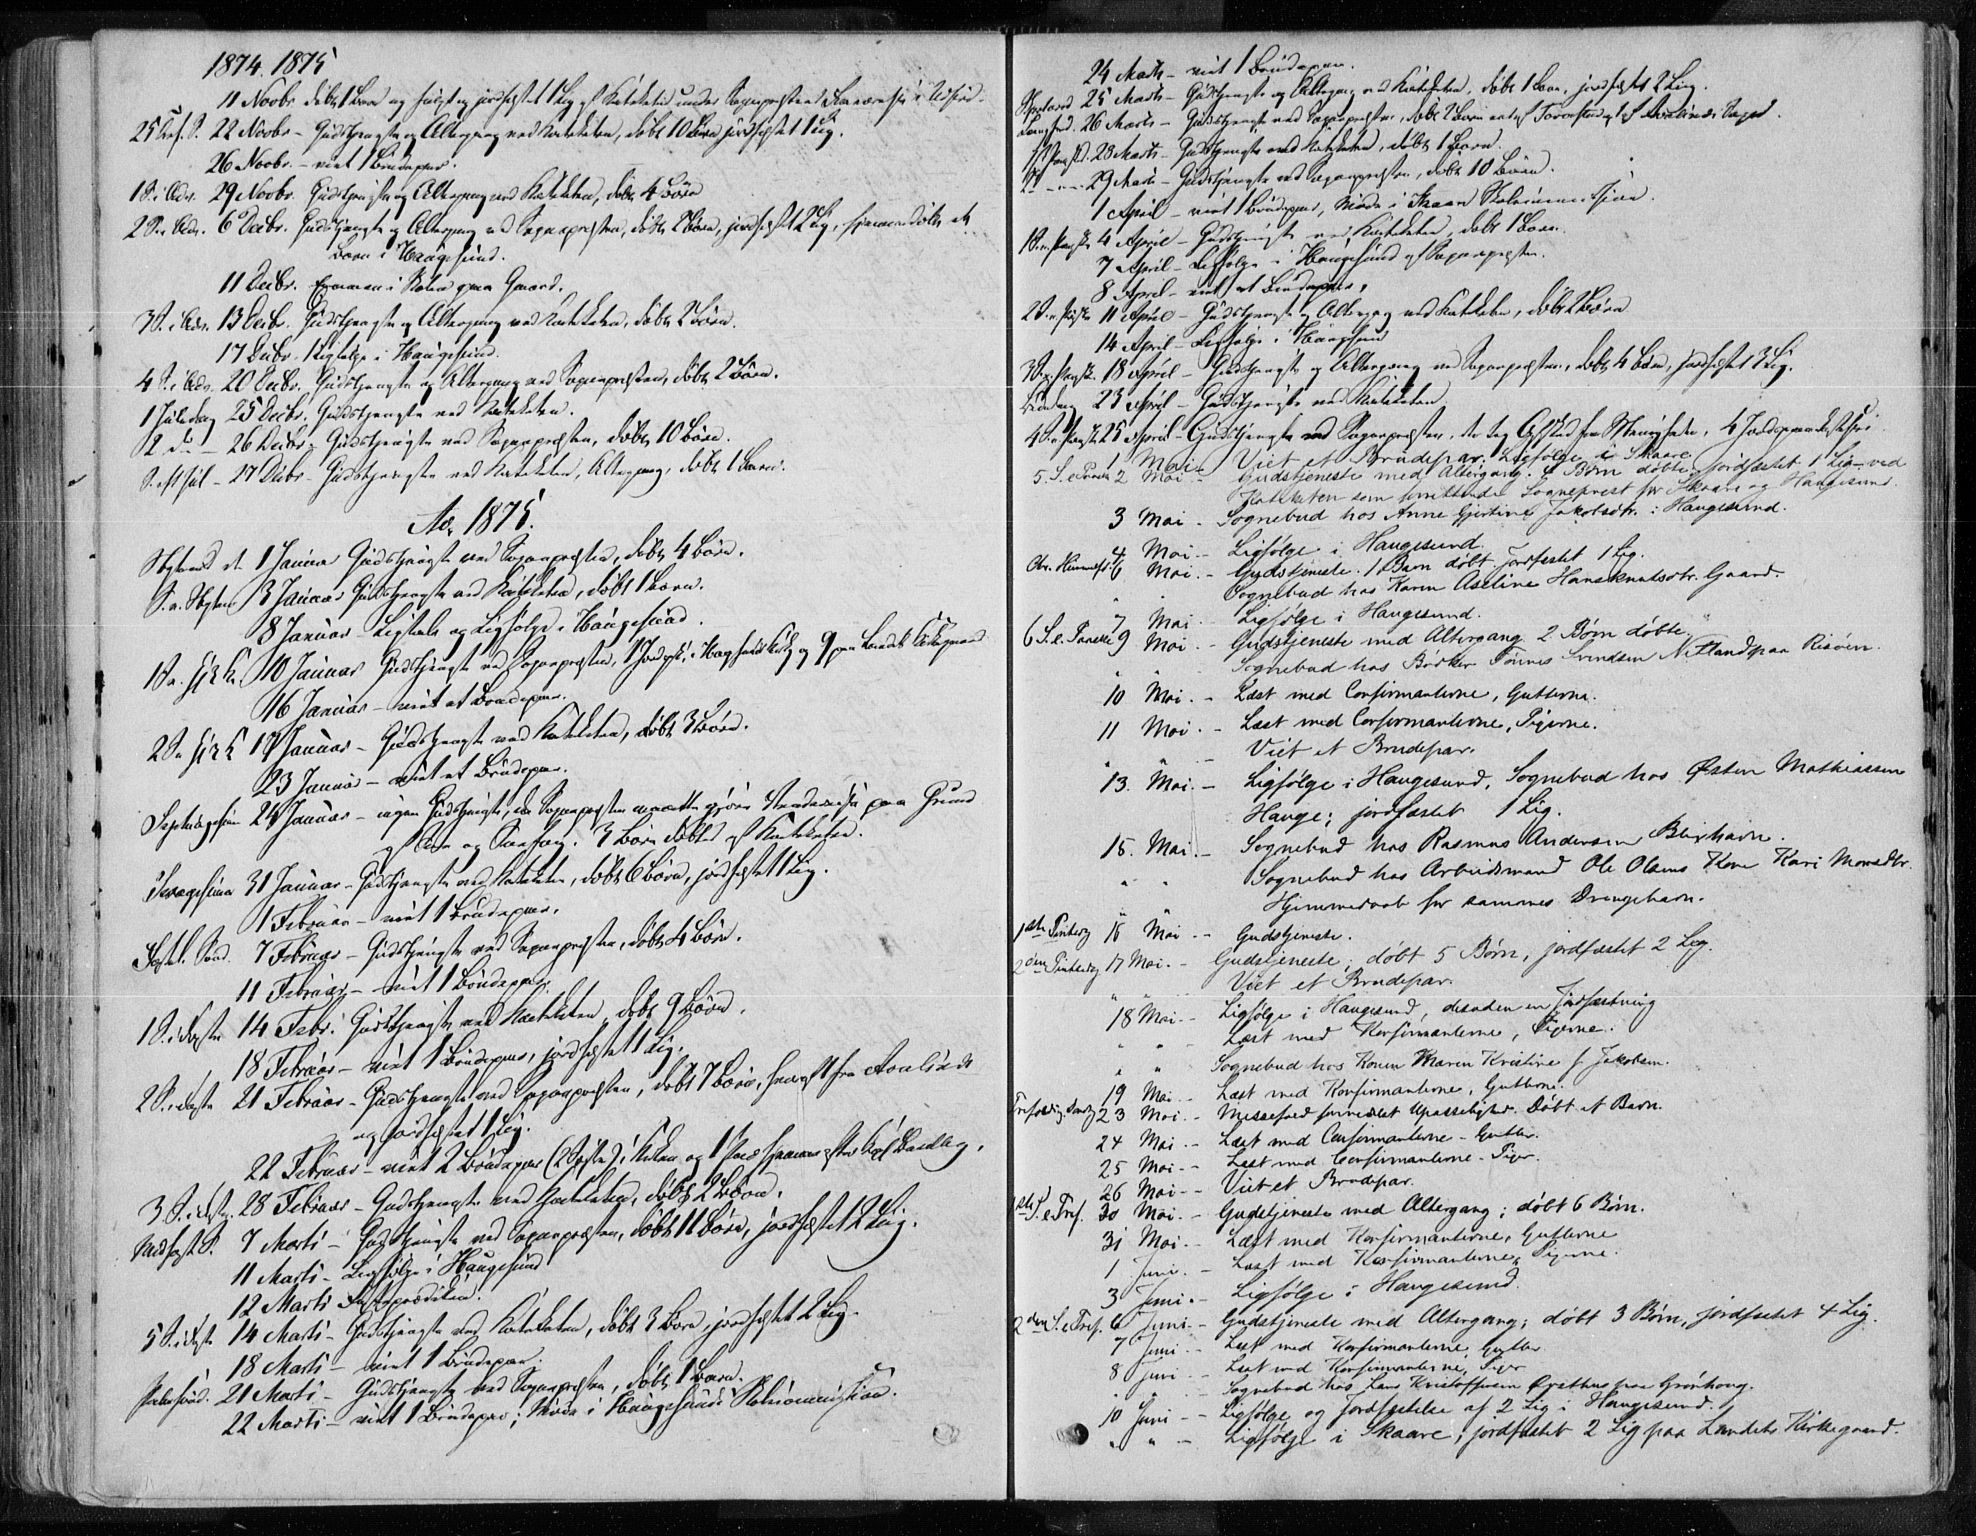 1874. 1875
11 Novbr. døbt 1 Barn og jordfæstet 1 Lig af Kateketen under Sognepræstens Fraværelse i
25 S. e. Tref. 22 Novbr. - Gudstjeneste og Altergang ved Kateketen, døbt 10 Børn, jordfæstet 1 Lig.
26 Novbr. - viet 1 Brudepar.
1 S. i Adv. 29 Novbr. Gudstjeneste og Altergang ved Kateketen, døbt 4 Børn
2 S. i Adv. 6 Decbr. Gudstjeneste og Altergang ved Sognepræsten, døbt 2 Børn, jordfæstet 2 Lig, hjemmedøbt et
Barn i Haugesund.
11 Decbr. Examen i Skolen paa Gaard.
3 S. i Adv. 13 Decbr. Gudstjeneste og Altergang ved Kateketen, døbt 2 Børn.
17 Decbr. Ligfølge i Haugesund.
4 S. i Adv. 20 Decbr. Gudstjeneste og Altergang ved Sognepræsten, døbt 2 Børn.
1 Juledag 25 Decbr. Gudstjeneste ved Kateketen.
2 d. - 26 Decbr. Gudstjeneste ved Sognepræsten, døbt 10 Børn.
S. eft. Jul - 27 Decbr. Gudstjeneste ved Kateketen, Altergang, døbt 1 Barn.
Ao. 1875.
Nytaarsd. 1 Januar Gudstjeneste ved Sognepræsten, døbt 4 Børn.
S. e. Nytaar 3 Januar Gudstjeneste ved Kateketen, døbt 1 Barn.
8 Januar - Ligtale og Ligfølge i Haugesund.
1 S. e. H3K. 10 Januar Gudstjeneste ved Sognepræsten, 1 Jordfæst. i Haugesunds Kirkeg. og 9 paa Landets Kirkegaard
16 Januar - viet et Brudepar.
2 S. e. H3K 17 Januar - Gudstjeneste ved Kateketen, døbt 3 Børn.
23 Januar - viet et Brudepar.
Septuagesima 24 Januar - ingen Gudstjeneste, da Sognepræsten maatte gjøre paa Grund
af og . 3 Børn døbtes af Kateketen.
Sexagesima 31 Januar - Gudstjeneste ved Kateketen, døbt 6 Børn, jordfæstet 1 Lig.
1 Februar - viet 1 Brudepar.
Fastel. Sønd. 7 Februar - Gudstjeneste ved Sognepræsten, døbt 4 Børn.
11 Februar - viet 1 Brudepar.
1 S. i Faste 14 Febr. Gudstjeneste ved Kateketen, døbt 9 Børn.
18 Februar - viet 1 Brudepar, jordfæstet 1 Lig.
2 S. i Faste 21 Februar - Gudstjeneste ved Sognepræsten, døbt 7 Børn, heraf 1 fra
og jordfæstet 1 Lig.
22 Februar - viet 2 Brudepar i Kirken og 1 Par hjemme efter Kgl. Bevilling.
3 S. i Faste 28 Februar - Gudstjeneste ved Kateketen, døbt 2 Børn.
Midfaste S. 7 Marts - Gudstjeneste ved Sognepræsten, døbt 11 Børn, jordfæstet 2 Lig.
11 Marts - Ligfølge i Haugesund
12 Marts Fasteprædiken.
5 S. i Faste 14 Marts - Gudstjeneste ved Kateketen, døbt 3 Børn, jordfæstet 2 Lig.
18 Marts - viet 1 Brudepar.
Palmesønd. 21 Marts - Gudstjeneste ved Sognepræsten, døbt 1 Barn.
22 Marts - viet 1 Brudepar; Møde i Haugesunds Skolecommission.
24 Marts - viet 1 Brudepar.
Skjærtorsd. 25 Marts - Gudstjeneste og Altergang ved Kateketen, døbt 1 Barn, jordfæstet 2 Lig.
Langfred. 26 Marts - Gudstjeneste ved Sognepræsten, døbt 2 Børn
1ste Paaskd. 28 Marts - Gudstjeneste ved Kateketen, døbt 1 Barn.
29 Marts - Gudstjeneste ved Sognepræsten, døbt 10 Børn.
1 April - viet 1 Brudepar, Møde i Skaare Skolecommission.
1 S. e. Paaske 4 April - Gudstjeneste ved Kateketen, døbt 1 Barn.
7 April - Ligfølge i Haugesund af Sognepræsten.
8 April - viet et Brudepar.
2 S. e. Paaske 11 April - Gudstjeneste og Altergang ved Kateketen, døbt 2 Børn
14 April - Ligfølge i Haugesund
3 S. e. Paaske 18 April - Gudstjeneste og Altergang ved Sognepræsten, døbt 4 Børn, jordfæstet 3 Lig.
Bededag 23 April - Gudstjeneste ved Kateketen
4 S. e. Paaske 25 April - Gudstjeneste ved Sognepræsten, der tog Afsked fra Menigheden, 4 Jordpaakastelser.
1 Mai - Viet et Brudepar. Ligfølge i Skaare
5. S. e Paaske 2 Mai. - Gudstjeneste med Altergang. 4 Børn døbte, jordfæstet 1 Lig - ved
Kateketen som constitueret Sogneprest for Skaare og Haugesund.
3 Mai - Sognebud hos Anne Gjertine Jakobsdtr. i Haugesund.
4 Mai - Ligfølge i Haugesund.
Chr. Himmelf. 6 Mai. - Gudstjeneste. 1 Barn døbt. Jordfæstet 1 Lig.
" " Sognebud hos Karen Aseline Hansknutsdtr. Gaard.
7 Mai - Ligfølge i Haugesund.
6 S. e. Paaske 9 Mai. - Gudstjeneste med Altergang 2 Børn døbte.
" " Sognebud hos Bødker Tønnes Svendsen Netland paa Risøen.
10 Mai. - Læst med Confirmanterne, Gutterne.
11 Mai. - Læst med Confirmanterne, Pigerne.
" " - Viet et Brudepar.
13. Mai. - Ligfølge i Haugesund, Sognebud hos Østen Mathiassen
Hauge; jordfæstet 1 Lig.
15. Mai. - Sognebud hos Rasmus Andersen Blixhavn.
" " Sognebud hos Arbeidsmand Ole Olsens Kone Kari Monsdtr.
Hjemmedaab for sammes Drengebarn.
1ste Pintsdg 16 Mai - Gudstjeneste.
2den Pintsedg 17 Mai. - Gudstjeneste; døbt 5 Børn, jordfæstet 2 Lig.
" " Viet et Brudepar.
18 Mai - Ligfølge i Haugesund, desuden en Jordfæstning
" " - Læst med Konfirmanterne, Pigerne.
" " Sognebud hos Konen Maren Kristine f. Jakobsen.
19 Mai - Læst med Konfirmanterne, Gutterne.
Trefoldig. Søndg 23 Mai. - Messefald formedelst Upasselighed. Døbt et Barn.
24 Mai - Læst med Confirmanterne - Gutter.
25 Mai - Læst med Confirmanterne - Piger.
26 Mai - Viet et Brudepar.
1ste S. e. Tref. 30 Mai. - Gudstjeneste med Altergang; døbt 6 Børn.
31 Mai. - Læst med Konfirmanterne, Gutterne
1 Juni. - Læst med Konfirmanterne, Pigerne.
3 Juni. - Ligfølge i Haugesund.
2den S. e Tref. 6 Juni - Gudstjeneste med Altergang; døbt 3 Børn, jordfæstet 4 Lig.
7 Juni - Læst med Konfirmanterne, Gutter
8 Juni - Læst med Konfirmanterne, Piger
" " - Sognebud hos Lars Kristoffersen paa Grønhoug.
10 Juni - Ligfølge og Jordfæstelse af 2 Lig i Haugesund.
" " - Ligfølge i Skaare, jordfæstet 2 Lig paa Landets Kirkegaard.